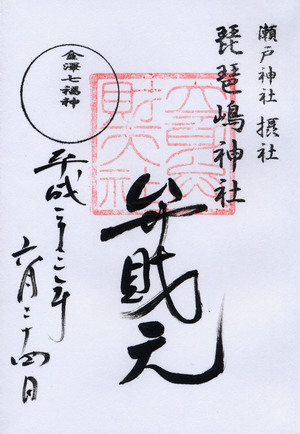 瀬戸神社 摂社
琵琶嶋神社
弁財天
金澤七福神
平成二十二年
六月二十四日